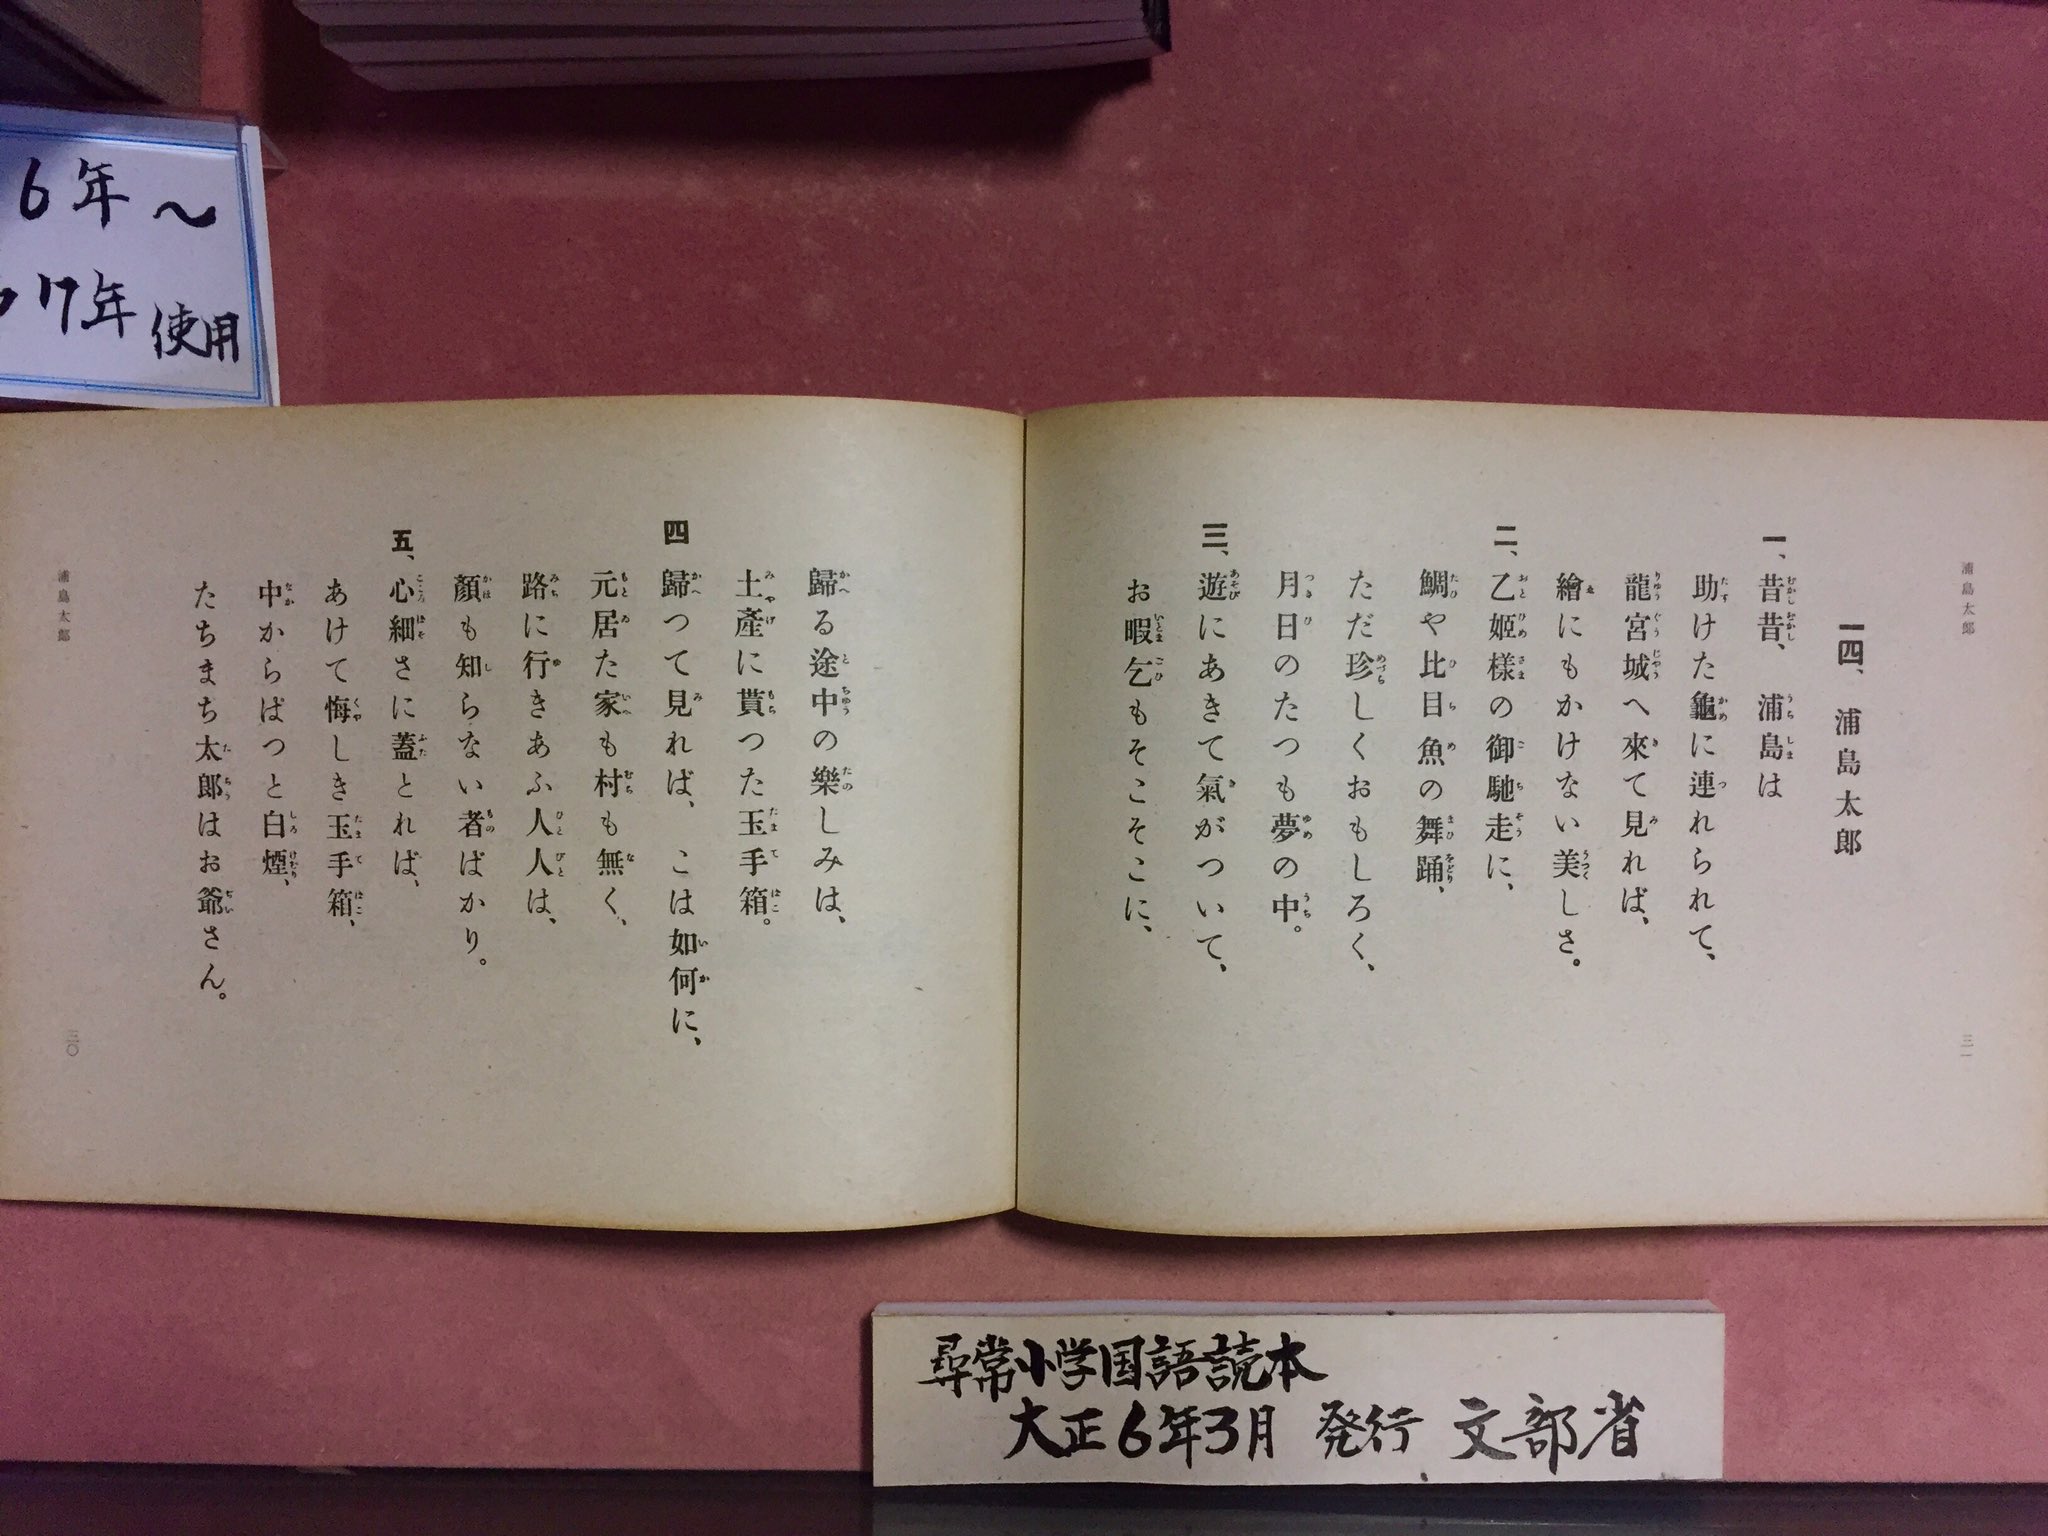 6年〜
17年使用
浦島太郎
三一
一四、浦島太郎
一、昔昔、浦島は
助けた龜に連れられて、
龍宮城へ來て見れば、
繪にもかけない美しさ。
二、乙姬様の御馳走に、
鯛や比目魚の舞踊、
ただ珍しくおもしろく、
月日のたつも夢の中。
三、遊にあきて氣がついて、
お暇乞もそこそこに、
歸る途中の樂しみは、
土產に貰つた玉手箱。
四歸つて見れば、こは如何に、
元居た家も村も無く、
路に行きあふ人人は、
顏も知らない者ばかり。
五、心細さに蓋とれば、
あけて悔しき玉手箱、
中からぱつと白煙、
たちまち太郎はお爺さん。
浦島太郎
三〇
尋常小学国語読本
大正6年3月 発行 文部省